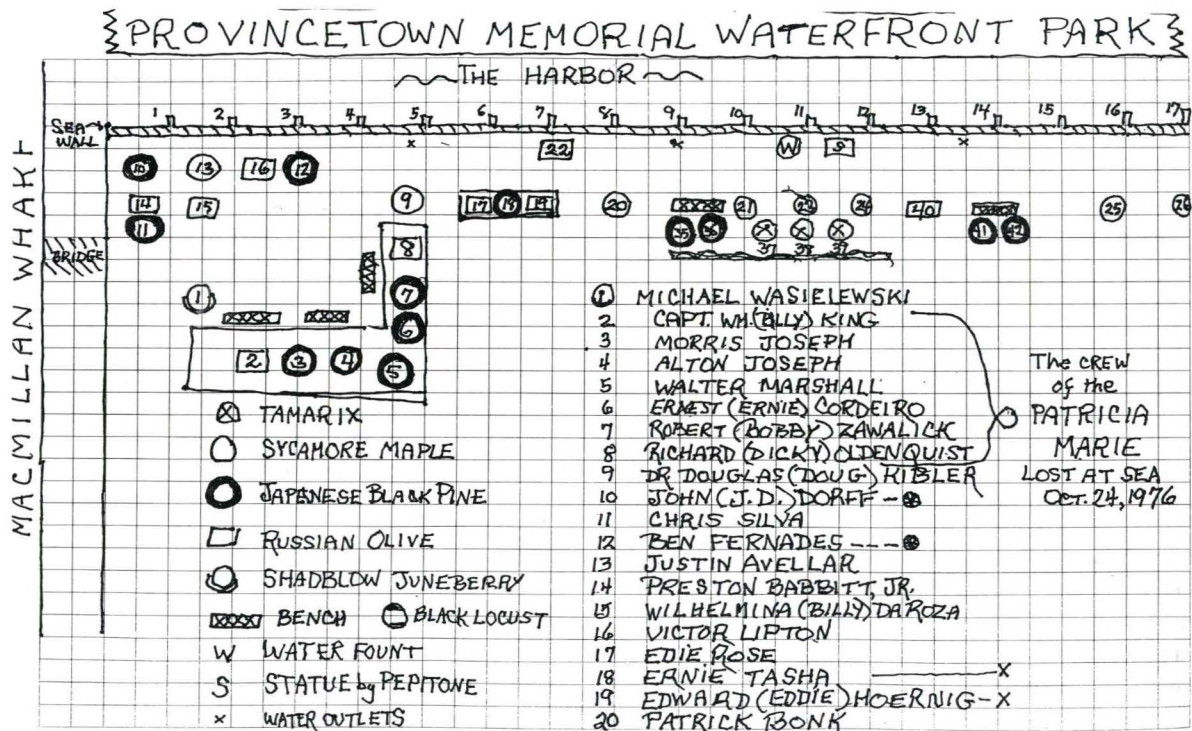 PROVINCETOWN MEMORIAL WATERFRONT PARK
THE HARBOR
1 2 3 4 5 6 7 8 9 10 11 12 13 14 15 16 17
SEA
WALL
MACMILLAN WHARF
BRIDGE
22 W S
10 13 16 12
14 15 9 17 18 19 20 21 40 25
11 35 36 41 42
37 38 39
8
7
1
6
2 3 4 5
TAMARIX
SYCAMORE MAPLE
JAPANESE BLACK PINE
RUSSIAN OLIVE
SHADBLOW JUNEBERRY
BENCH BLACK LOCUST
W WATER FOUNT
S STATUE by PEPITONE
x WATER OUTLETS
1 MICHAEL WASIELEWSKI
2 CAPT. WM. (BILLY) KING
3 MORRIS JOSEPH
4 ALTON JOSEPH
5 WALTER MARSHALL
6 ERNEST (ERNIE) CORDEIRO
7 ROBERT (BOBBY) ZAWALICK
8 RICHARD (DICKY) OLDENQUIST
9 DR DOUGLAS (DOUG) KIBLER
10 JOHN (J.D.) DORFF
11 CHRIS SILVA
12 BEN FERNADES
13 JUSTIN AVELLAR
14 PRESTON BABBITT, JR.
15 WILHELMINA (BILLY) DAROZA
16 VICTOR LIPTON
17 EDIE ROSE
18 ERNIE TASHA X
19 EDWARD (EDDIE) HOERNIG - X
20 PATRICK BONK
The CREW
of the
PATRICIA
MARIE
LOST AT SEA
OCT. 24, 1976